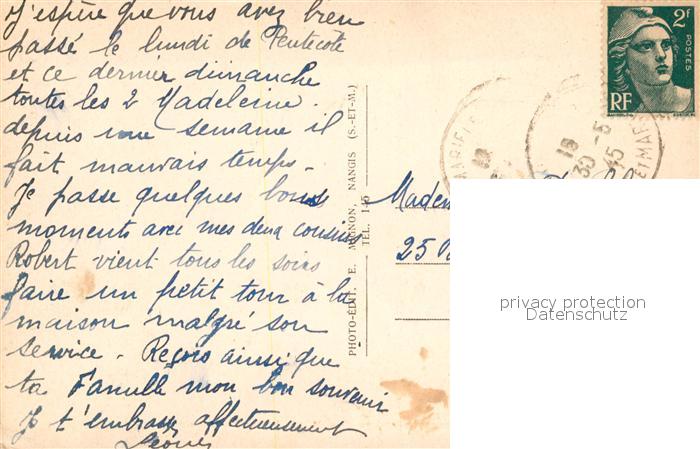 J'espère que vous avez bien
passé le lundi de Pentecôte
et ce dernier dimanche
toutes les 2 Madeleine.
depuis une semaine il
fait mauvais temps.
Je passe quelques bons
moments avec mes deux cousins
Robert vient tous les soirs
faire un petit tour à la
maison malgré son
service. Reçois ainsi que
ta famille mon bon souvenir
Je t'embrasse affectueusement
PHOTO-ÉDIT. E. MIGNON, NANGIS (S.-ET-M.)
TÉL. 145
2F
POSTES
RF
18
30 -5
45
Madem
25
privacy protection
Datenschutz